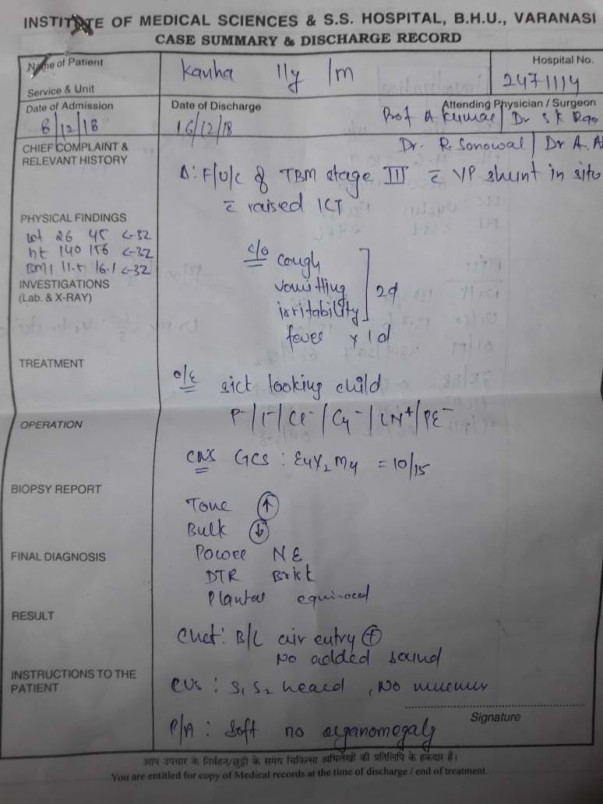 INSTITUTE OF MEDICAL SCIENCES & S.S. HOSPITAL, B.H.U., VARANASI
CASE SUMMARY & DISCHARGE RECORD
Name of Patient
Kanha 11y /m
Hospital No.
2471114
Service & Unit
Date of Admission
8/12/18
Date of Discharge
16/12/18
Attending Physician / Surgeon
Prof A Kumar | Dr S K Rao
Dr. R. Sonowal | Dr A. A
CHIEF COMPLAINT &
RELEVANT HISTORY
Δ: F/U/C of TBM stage III c̄ VP shunt in situ
c̄ raised ICT
PHYSICAL FINDINGS
wt 26 45 <-3Z
ht 140 156 <-3Z
BMI 11.5 16.1 <-3Z
INVESTIGATIONS
(Lab. & X-RAY)
c/o cough
vomitting
irritability ] 2d
fever x 1d
TREATMENT
o/E sick looking child
OPERATION
P-/I-/Cl-/Cy-/LN+/PE-
CNS GCS : E4V2M4 = 10/15
BIOPSY REPORT
Tone ↑
Bulk ↓
FINAL DIAGNOSIS
Power NE
DTR Brisk
Plantar equivocal
RESULT
Chest: B/L air entry +
No added sound
INSTRUCTIONS TO THE
PATIENT
CVS : S1 S2 heard , No murmur
Signature
P/A : Soft no organomegaly
आप उपचार के निर्वहन/छुट्टी के समय चिकित्सा अभिलेखों की प्रतिलिपि के हकदार हैं।
You are entitled for copy of Medical records at the time of discharge / end of treatment.